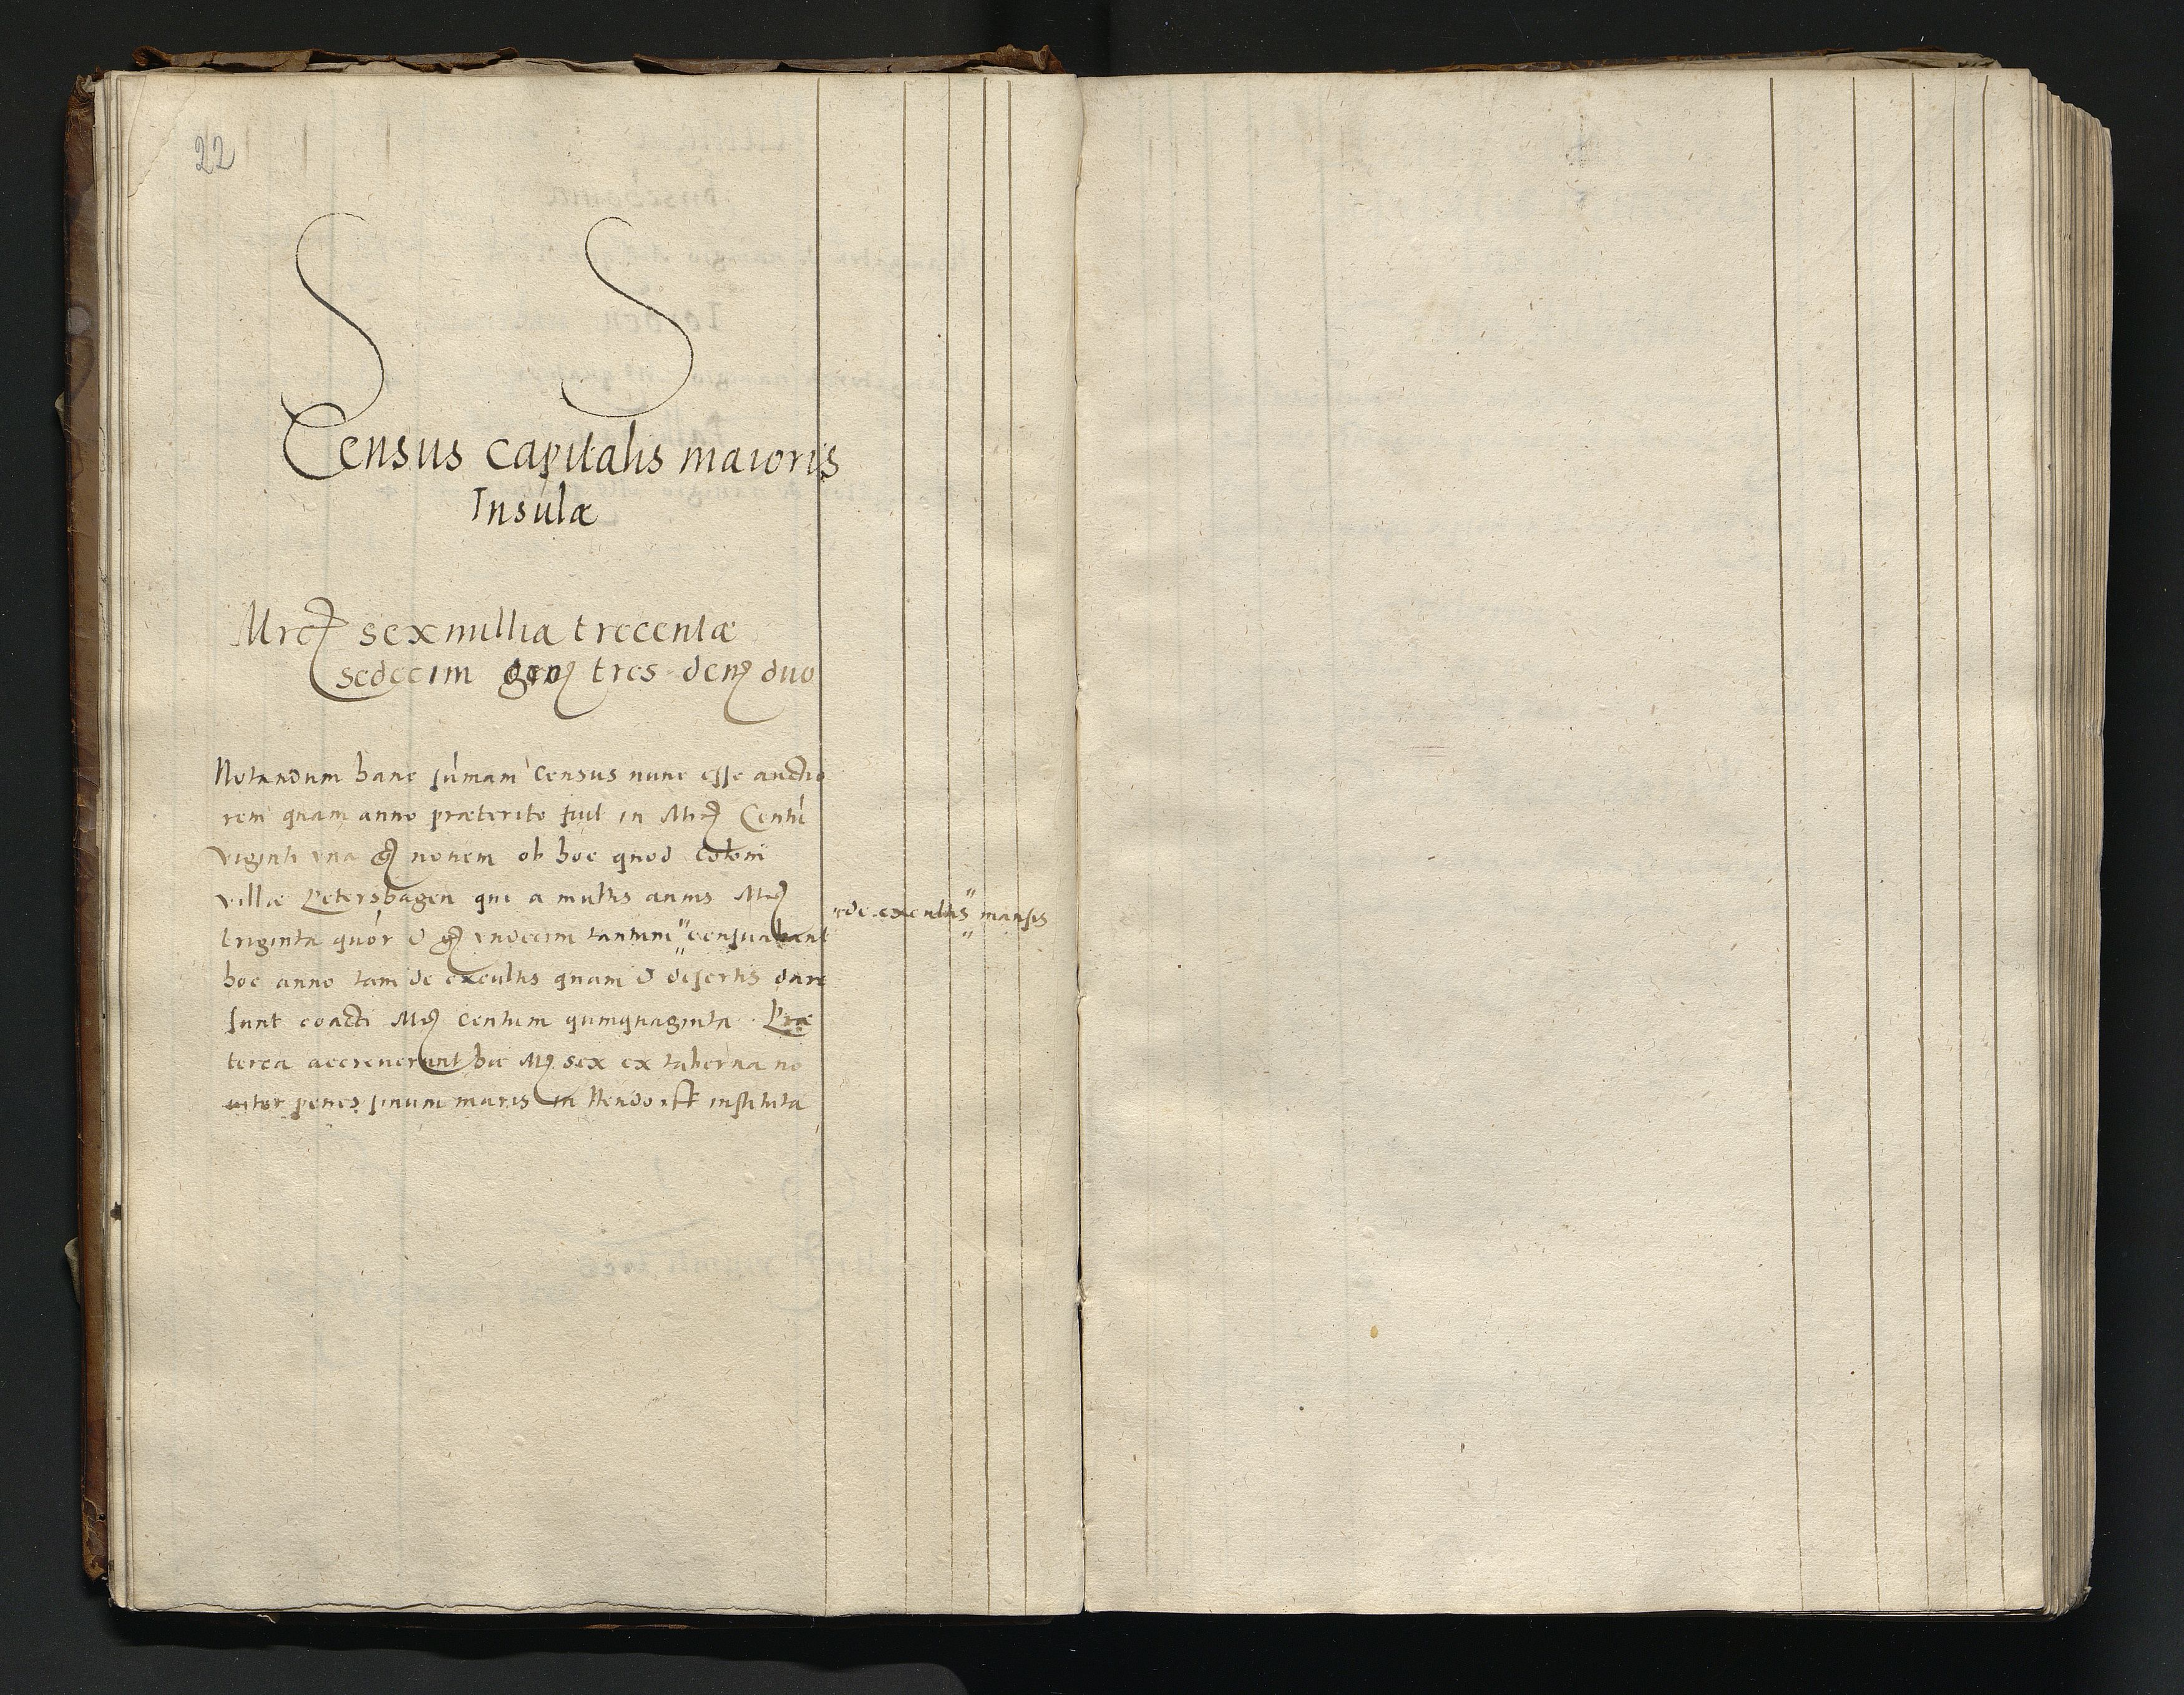 22
S S
Census capitalis maioris
Insulæ
Mrc sex millia trecentæ
sedecim gr tres den duo
Notandum hanc sumam census nunc esse auctio
rem quam anno præterito fuit in Mrc Centu
viginti una g nonem ob hoc quod coloni
villæ Petershagen qui a multis annis Mrc
triginta quor et g undecim tantum " censuabant
"de excultis" mansis
hoc anno tam de excultis quam et desertis dare
sunt coacti Mrc centum quinquaginta. Præ
terea accreuerunt huc Mrc sex ex taberna no
uiter penes sinum maris in instituta